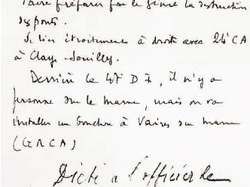 faire préparer par le Génie la destruction
des ponts.
Se lier étroitement à droite avec 24 CA
à Claye-Souilly.
Derrière la 4e D I, il n'y a
personne sur la Marne, mais on va
installer un bouchon à Vaires sur Marne
(GRCA)
Dicté à l'officier de